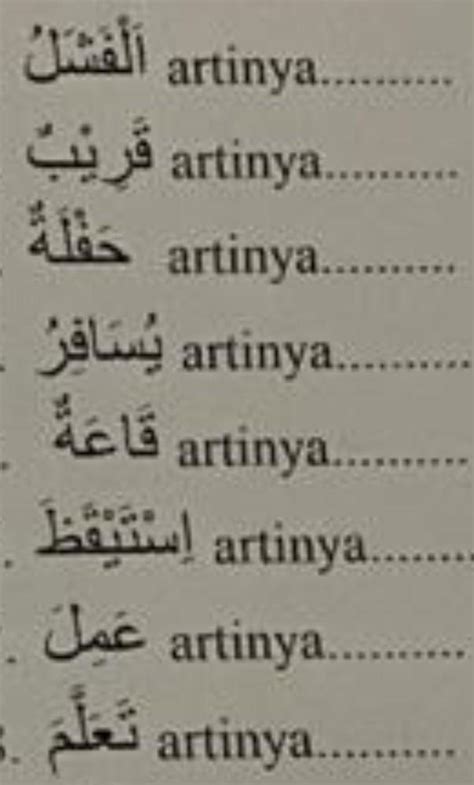 اَلْفَشَلُ artinya..........
قَرِيْبٌ artinya..........
حَفْلَةٌ artinya..........
يُسَافِرُ artinya..........
قَاعَةٌ artinya..........
اِسْتَيْقَظَ artinya..........
عَمِلَ artinya..........
تَعَلَّمَ artinya..........